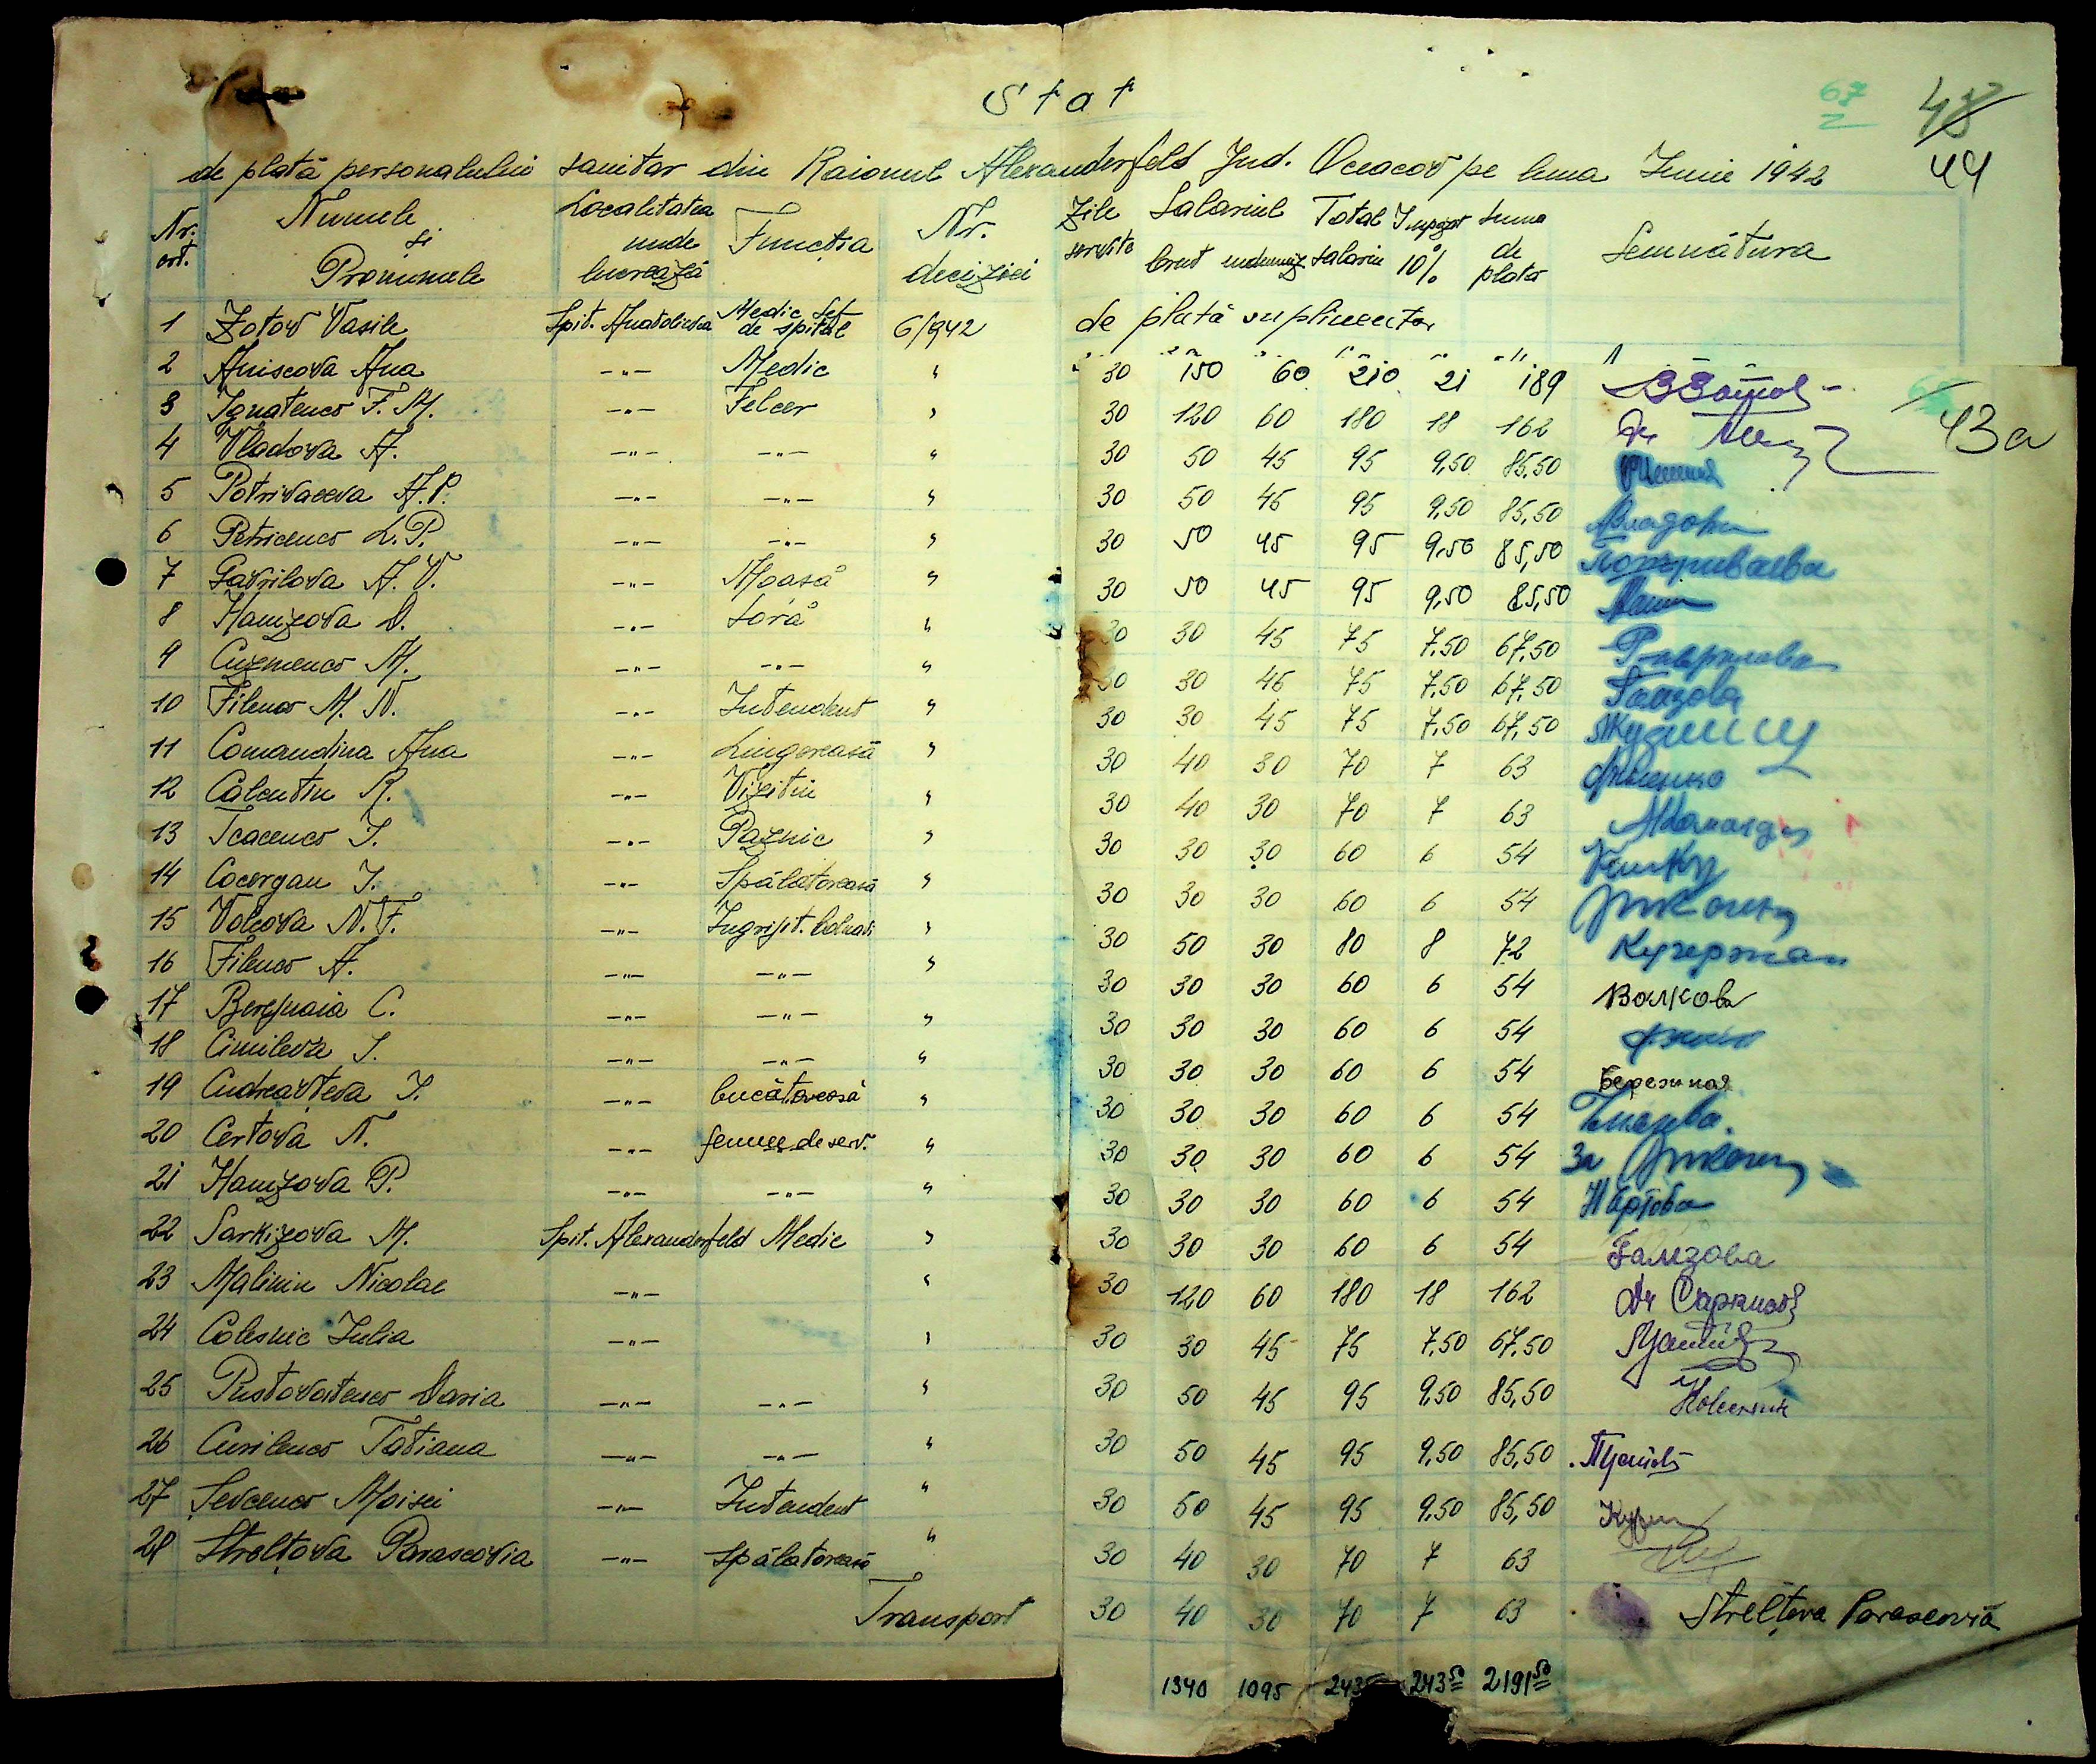 Stat
67
48
44
de plată personalului sanitar din Raionul Alexanderfeld Jud. Oceacov pe luna Iunie 1942
Nr. crt. Numele și Pronumele Localitatea unde lucrează Funcția Nr. deciziei Zile servite Salariul brut indemniz Total salariu Impozit 10% Suma de plată Semnătura
de plată suplimentar
43a
1 Zotov Vasile Spit. Anatolievca Medic șef de spital 6/942 30 150 60 210 21 189
2 Aniscova Ana -„- Medic „ 30 120 60 180 18 162 Dr
3 Ignatenco F. M. -„- Felcer „ 30 50 45 95 9,50 85,50
4 Vladova A. -„- -„- „ 30 50 45 95 9,50 85,50 Владова
5 Potrivaeva A.P. -„- -„- „ 30 50 45 95 9,50 85,50 Потриваева
6 Petricenco L.P. -„- -„- „ 30 50 45 95 9,50 85,50
7 Gavrilova A. V. -„- Moașă „ 30 30 45 75 7,50 67,50 Гаврилова
8 Hamzova D. -„- Soră „ 30 30 45 75 7,50 67,50 Гамзова
9 Cuzmenco M. -„- -„- „ 30 30 45 75 7,50 67,50
10 Filenco M. N. -„- Intendent „ 30 40 30 70 7 63 Филенко
11 Comandina Ana -„- Lingereasă „ 30 40 30 70 7 63
12 Calentin R. -„- Vizitiu „ 30 30 30 60 6 54
13 Tcacenco I. -„- Paznic „ 30 30 30 60 6 54
14 Cocergan I. -„- Spălatoreasă „ 30 50 30 80 8 72 Кучержан
15 Volcova N. F. -„- Ingrijit. bolnavi „ 30 30 30 60 6 54 Волкова
16 Filenco A. -„- -„- „ 30 30 30 60 6 54
17 Berejnaia C. -„- -„- „ 30 30 30 60 6 54 Бережная
18 Cimileva I. -„- -„- „ 30 30 30 60 6 54
19 Cudreavțeva I. -„- bucătoreasă „ 30 30 30 60 6 54 За
20 Certova N. -„- femee de serv. „ 30 30 30 60 6 54
21 Hamzova P. -„- -„- „ 30 30 30 60 6 54 Гамзова
22 Sarkizova M. Spit. Alexanderfeld Medic „ 30 120 60 180 18 162 Dr Саркизов
23 Malinin Nicolae -„- „ 30 30 45 75 7,50 67,50
24 Colesnic Iulia -„- „ 30 50 45 95 9,50 85,50 Колесник
25 Pustovoitenco Daria -„- -„- „ 30 50 45 95 9,50 85,50
26 Curilenco Tatiana -„- -„- „ 30 50 45 95 9,50 85,50
27 Șevcenco Moisei -„- Intendent „ 30 40 30 70 7 63
28 Strelțova Parascovia -„- Spălatoreasă „ 30 40 30 70 7 63 Strelțova Parascovia
Transport 1340 1095 243 243 50 2191 50